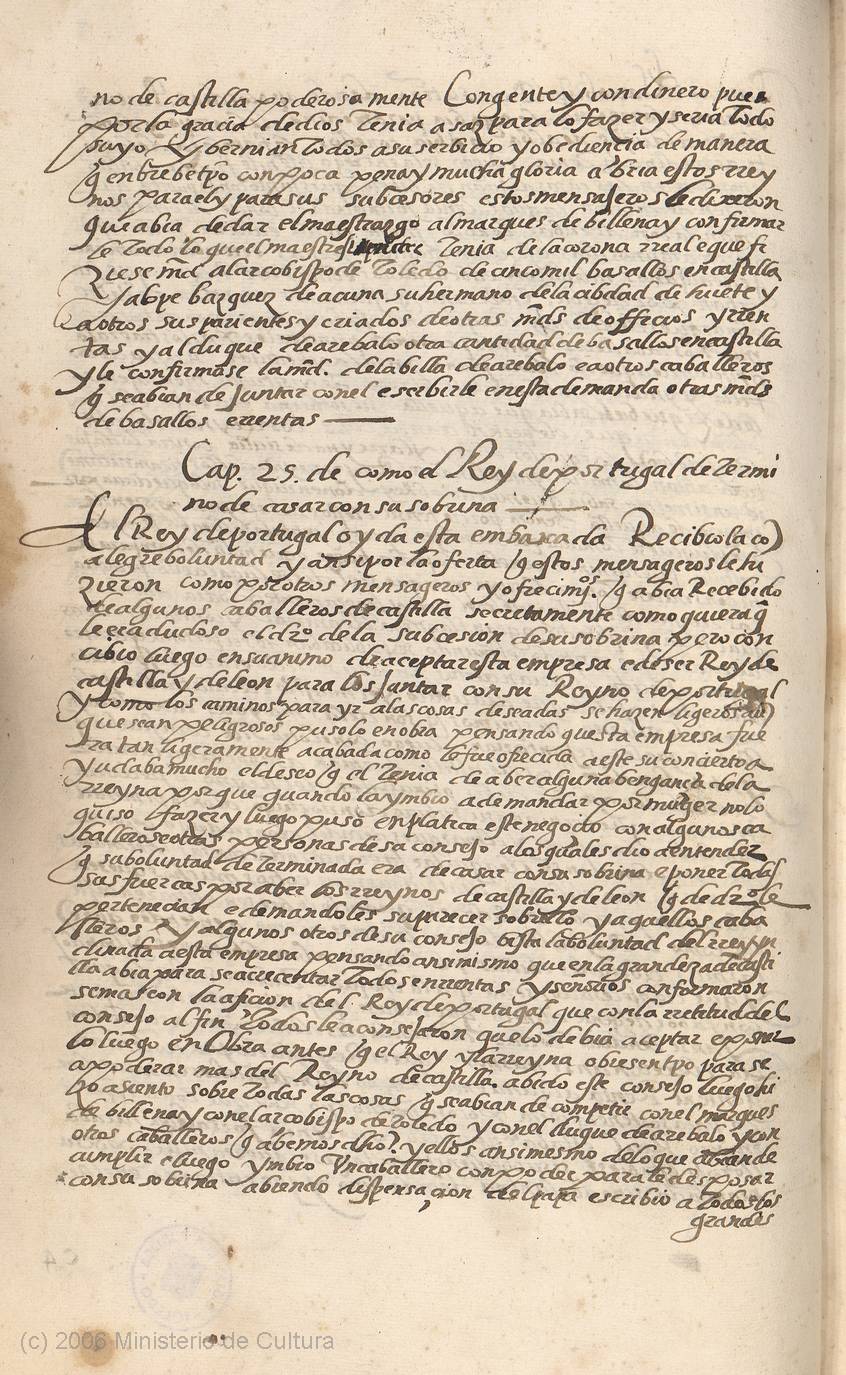 no de castilla poderosa mente Con gente y con dinero pues
por la gracia de dios Tenia asaz para lo fazer y seria Todo
suyo y bernian Todos a su serbicio y obediencia de manera
q en brebe tpo con poca pena y mucha gloria abria estos rrey
nos para el y para sus subcesores estos mensajeros le dixeron
que abia de dar el maestrazgo al marques de billena y confirmar
le Todo lo que el maestre su padre Tenia de la corona rreal e que fi
ziese md al arcobispo de Toledo de cinco mil basallos en castilla
y a lope bazquez de acuna su hermano de la cibdad de huete y
a otros sus parientes y criados de otras mds de officios y rren
tas y al duque de arebalo otra cantidad de basallos en castilla
y le confirmase la md. de la billa de arebalo e a otros caballeros
q se abian de Juntar con el e serbirle en esta demanda otras mds
de basallos e rrentas
Cap. 25. de como el Rey de portugal de Termi
no de casar con su sobrina
El Rey de portugal oyda esta embaxada Recibiola co)
alegre boluntad y ansi por la oferta q estos mensageros le hi
zieron como por otros mensageros y ofrecimos. q abia Recebido
de algunos caballeros de castilla secretamente como quiera q
le era dudoso el dro de la subcesion de su sobrina pero con
cibio luego en su animo de aceptar esta empresa e de ser Rey de
castilla y de leon para los Juntar con su Reyno de portugal
y como los caminos para yr a las cosas deseadas se hazen ligeros au)
que sean peligrosos pusolo en obra pensando que sta empresa fue
ra tan ligeramente acabada como le fue ofrecida a este su concierto a
yudaba mucho el deseo q el Tenia de aber alguna benganca de la
rreyna por que quando la ymbio a demandar por muger no lo
quiso fazer y luego puso en platica este negocio con algunos ca
balleros e otras personas de su consejo a los quales dio a entender
q su boluntad determinada era de casar con su sobrina e poner Todas
sus fuercas por aber los rreynos de castilla y de leon q de dro le
pertenecian e demandoles su parecer sobrello y aquellos caba
lleros y algunos otros de su consejo bista la boluntad del rrey yn
clinada a esta empresa pensando ansimismo que en la grandeza de casti
lla abia para se acrecentar Todos en rrentas y senorios conformaron
se mas con la aficion del Rey de portugal que con la rretitud del
consejo al fin Todos le aconsejaron que lo debia aceptar e poner
lo luego en Obra antes q el Rey y la rreyna obiesen tpo para se
apoderar mas del Reyno de castilla. abido este consejo luego hi
zo asiento sobre Todas las cosas q se abian de competir con el marques
de billena y con el arcobispo de Toledo y con el duque de arebalo y con
otros caballeros q abemos dho. y ellos ansimesmo de lo que abian de
cumplir e luego ymbio Un caballero con poder para le desposar
con su sobrina abiendo dispensacion del papa escribio a Todos los
grandes
(c) 2006 Ministerio de Cultura